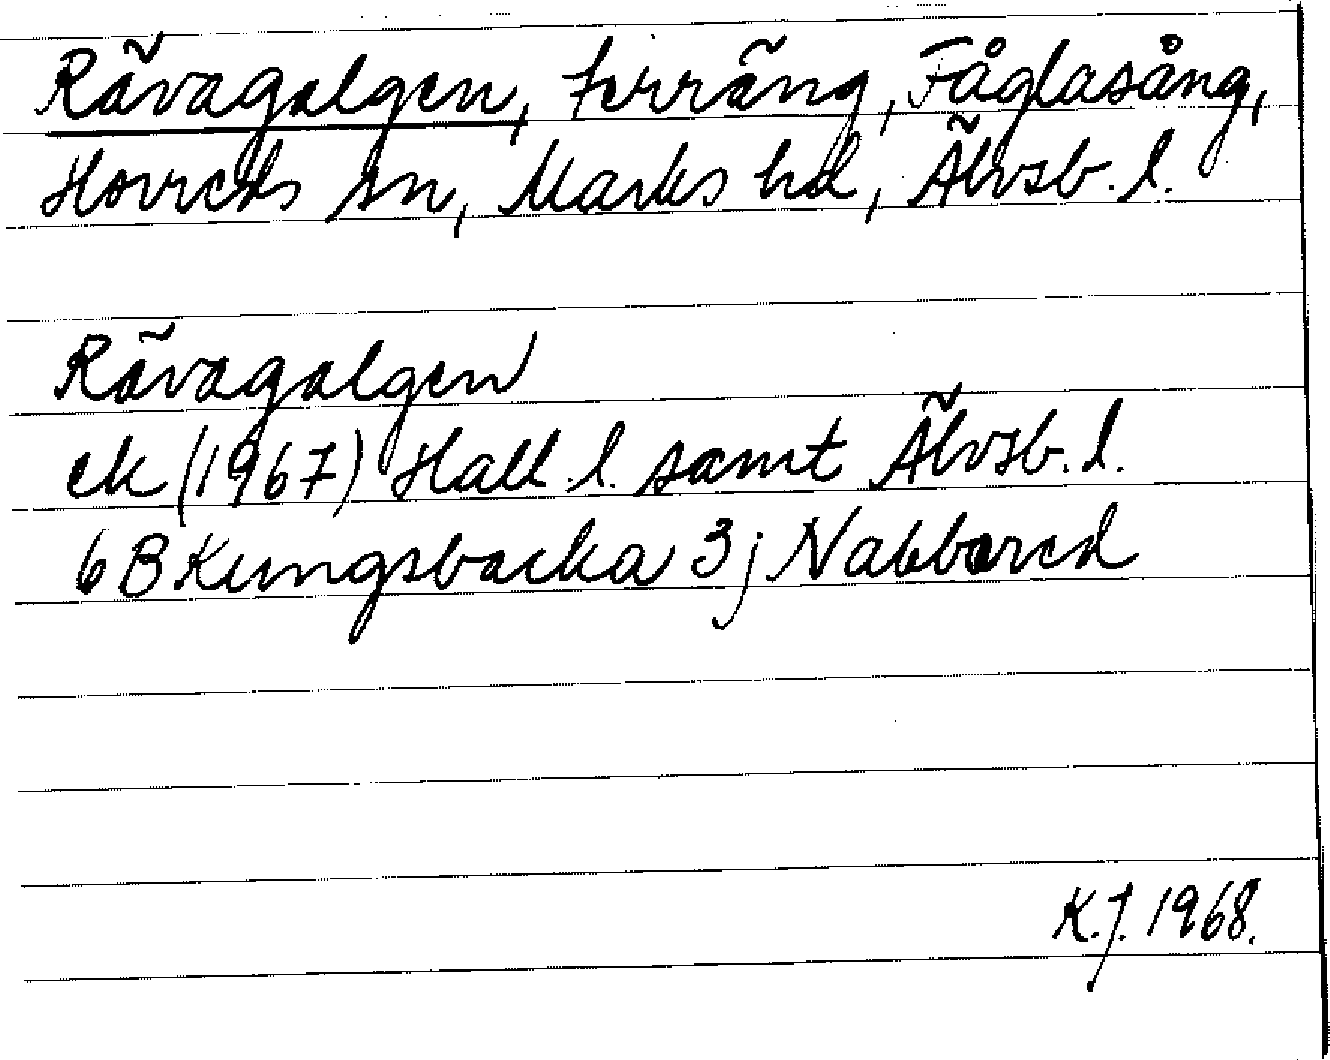 Rävagalgen, terräng, Fåglasång,
Horreds sn, Marks hd, Älvsb. l.
Rävagalgen
ek (1967) Hall. l. samt Älvsb. l.
6 B Kungsbacka 3 j Nabbared
K.J. 1968.